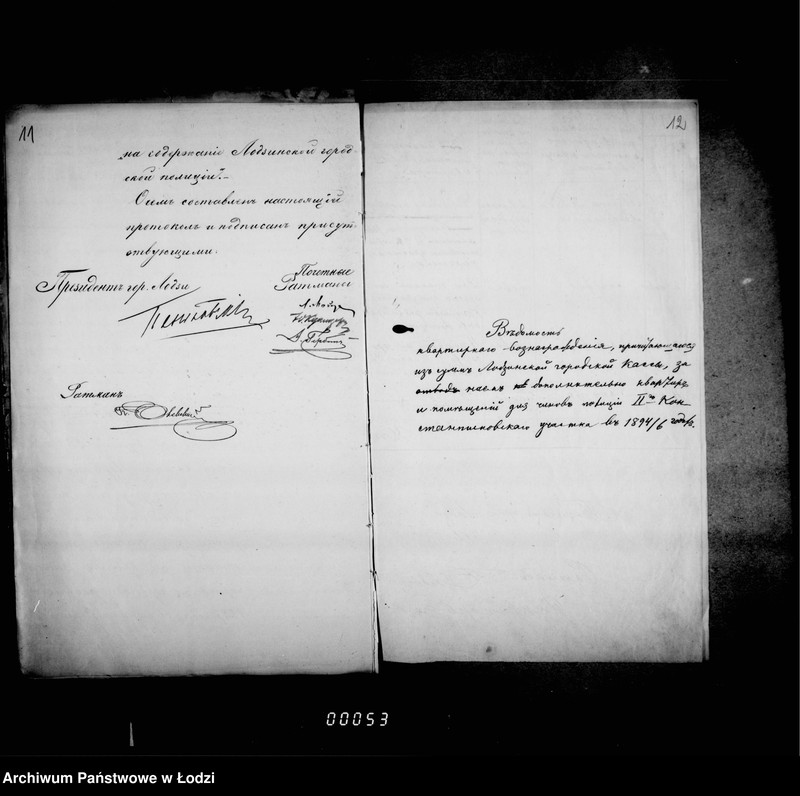 11
на содержаніе Лодзинской город-
ской полиціи".-
О семъ составленъ настоящій
протоколъ и подписанъ присут-
ствующими.
Президентъ гор. Лодзи
Почетные
Ратманы
Пеньковскій
Ратманъ
12
Вѣдомость
квартирнаго вознагражденія, причитающагося
изъ суммъ Лодзинской городской Кассы, за
наемъ дополнительно квартиръ
и помѣщеній для чиновъ полиціи II го Кон-
стантиновскаго участка въ 1894/6 годѣ.
00053
Archiwum Państwowe w Łodzi